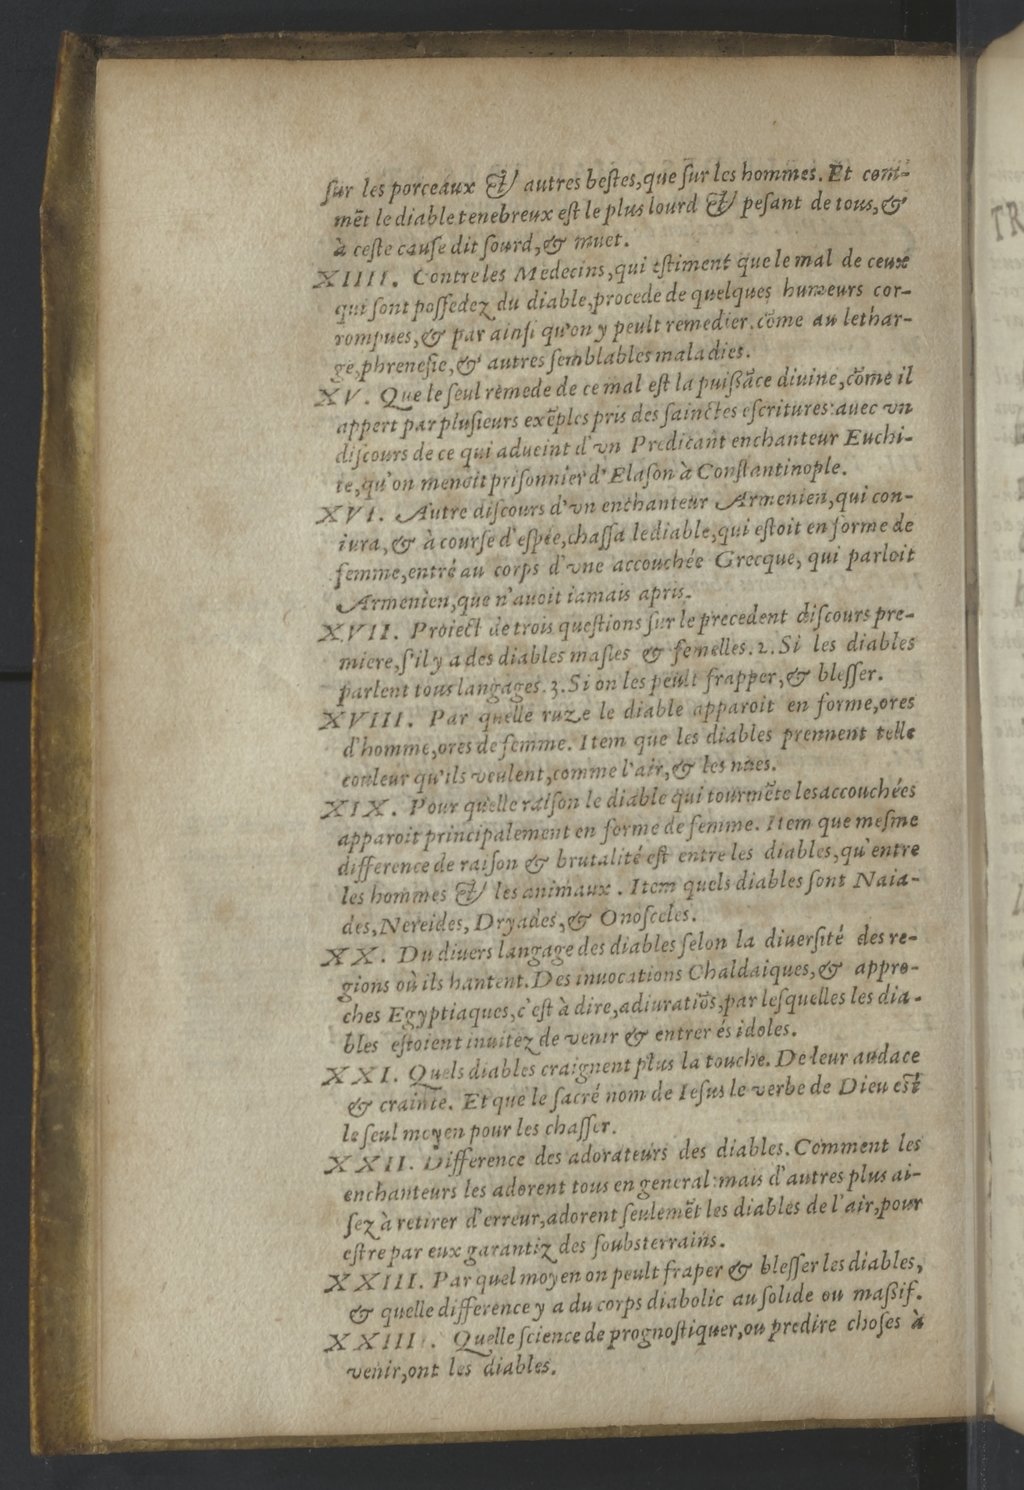 ſur les porceaux & autres beſtes, que ſur les hommes. Et com-
mēt le diable tenebreux eſt le plus lourd & peſant de tous, &
à ceſte cauſe dit ſourd, & muet.
XIIII. Contre les Medecins, qui eſtiment que le mal de ceux
qui ſont poſſedez du diable, procede de quelques humeurs cor-
rompues, & par ainſi qu'on y peult remedier, cōme au lethar-
ge, phreneſie, & autres ſemblables maladies.
XV. Que le ſeul remede de ce mal eſt la puiſſāce diuine, cōme il
appert par pluſieurs exēples pris des ſainctes eſcritures: auec vn
diſcours de ce qui adueint d'vn Predicant enchanteur Euchi-
te, qu'on menoit priſonnier d'Elaſon à Conſtantinople.
XVI. Autre diſcours d'vn enchanteur Armenien, qui con-
iura, & à courſe d'eſpée, chaſſa le diable, qui eſtoit en forme de
femme, entré au corps d'vne accouchée Grecque, qui parloit
Armenien, que n'auoit iamais apris.
XVII. Proiect de trois queſtions ſur le precedent diſcours pre-
miere, ſ'il y a des diables maſles & femelles. 2. Si les diables
parlent tous langages. 3. Si on les peult frapper, & bleſſer.
XVIII. Par quelle ruze le diable apparoit en forme, ores
d'homme, ores de femme. Item que les diables prennent telle
couleur qu'ils veulent, comme l'air, & les nues.
XIX. Pour quelle raiſon le diable qui tourmēte les accouchées
apparoit principalement en forme de femme. Item que meſme
difference de raiſon & brutalité eſt entre les diables, qu'entre
les hommes & les animaux. Item quels diables ſont Naia-
des, Nereides, Dryades, & Onoſceles.
XX. Du diuers langage des diables ſelon la diuerſité des re-
gions où ils hantent. Des inuocations Chaldaiques, & appro-
ches Egyptiaques, c'eſt à dire, adiuratiōs, par leſquelles les dia-
bles eſtoient inuitez de venir & entrer és idoles.
XXI. Quels diables craignent plus la touche. De leur audace
& crainte. Et que le ſacré nom de Ieſus le verbe de Dieu eſt
le ſeul moyen pour les chaſſer.
XXII. Difference des adorateurs des diables. Comment les
enchanteurs les adorent tous en general: mais d'autres plus ai-
ſez à retirer d'erreur, adorent ſeulemēt les diables de l'air, pour
eſtre par eux garantiz des ſoubsterrains.
XXIII. Par quel moyen on peult fraper & bleſſer les diables,
& quelle difference y a du corps diabolic au ſolide ou maſſif.
XXIIII. Quelle ſcience de prognoſtiquer, ou predire choſes à
venir, ont les diables.
TR